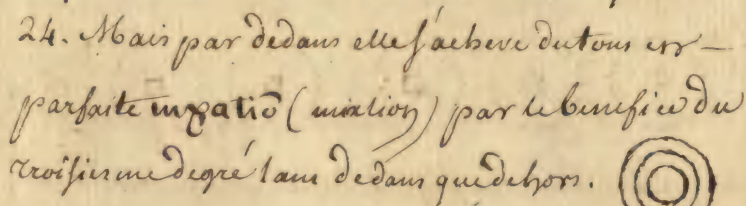 24. Mais par dedans elle s'acheve du tout en
parfaite mixatiō (mixtion) par le benefice du
troisiesme degré tant dedans que dehors.